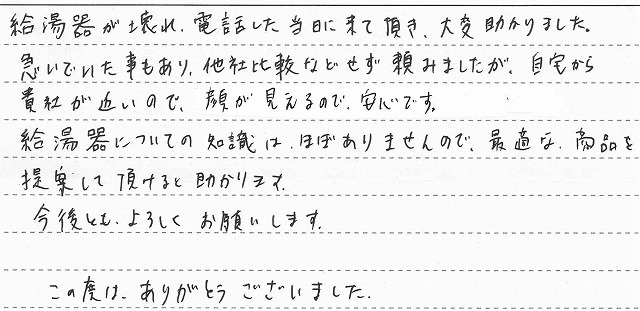 給湯器が壊れ、電話した当日に来て頂き、大変助かりました。
急いでいた事もあり、他社比較などせず頼みましたが、自宅から
貴社が近いので、顔が見えるので、安心です。
給湯器についての知識は、ほぼありませんので、最適な、商品を
提案して頂けると助かります。
今後とも、よろしくお願いします。
この度は、ありがとうございました。